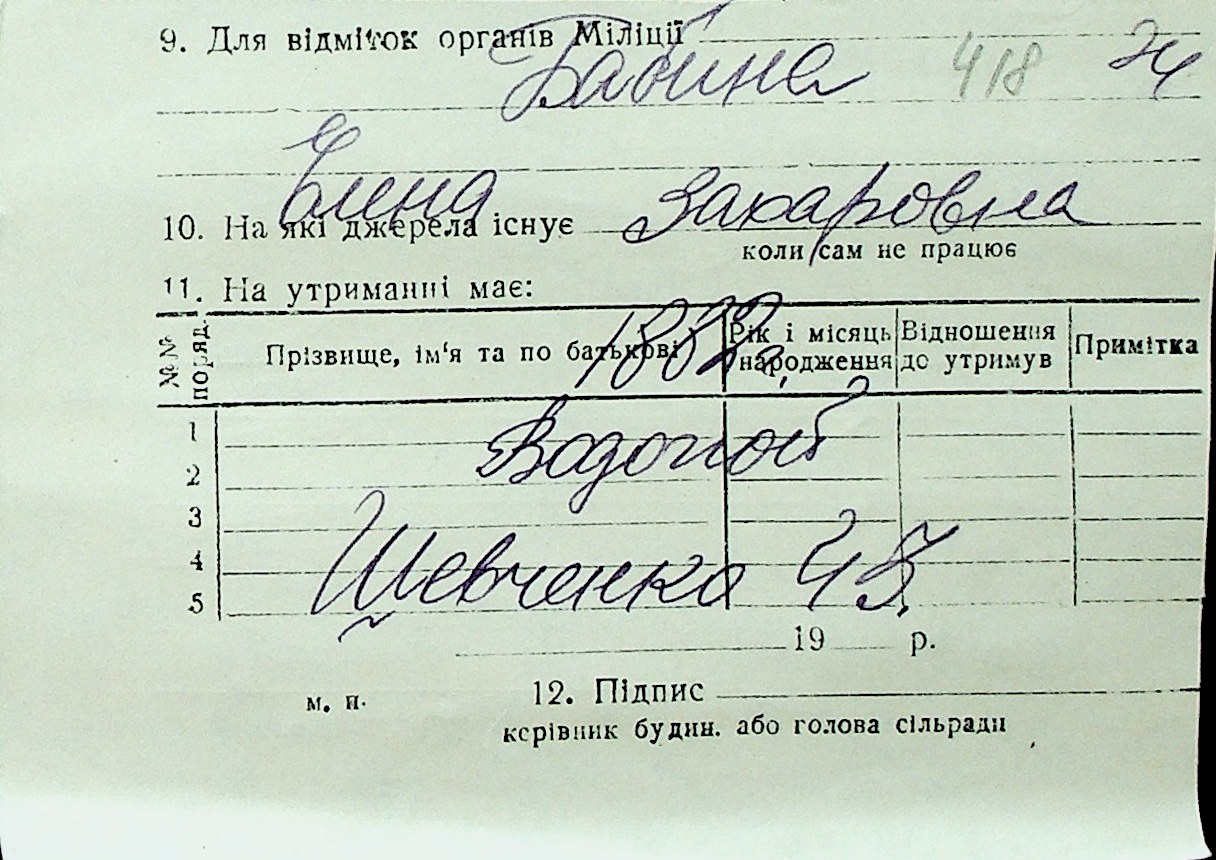 9. Для відміток органів Міліції
Бабина 418
Елина Захаровна
10. На які джерела існує
коли сам не працює
11. На утриманні має:
№№ поряд. Прізвище, ім'я та по батькові Рік і місяць народження Відношення до утримув Примітка
1882 г.
1
Водопой
2
3
Шевченко 45
4
5
19 р.
м. п. 12. Підпис
керівник будин. або голова сільради